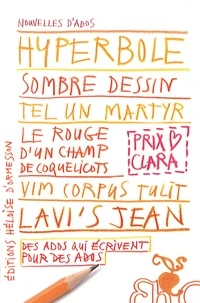 NOUVELLES D'ADOS
HYPERBOLE
SOMBRE DESSIN
TEL UN MARTYR
LE ROUGE
D'UN CHAMP
DE COQUELICOTS
PRIX
CLARA
VIM CORPUS TULIT
LAVI'S JEAN
DES ADOS QUI ÉCRIVENT
POUR DES ADOS
ÉDITIONS HÉLOÏSE D'ORMESSON